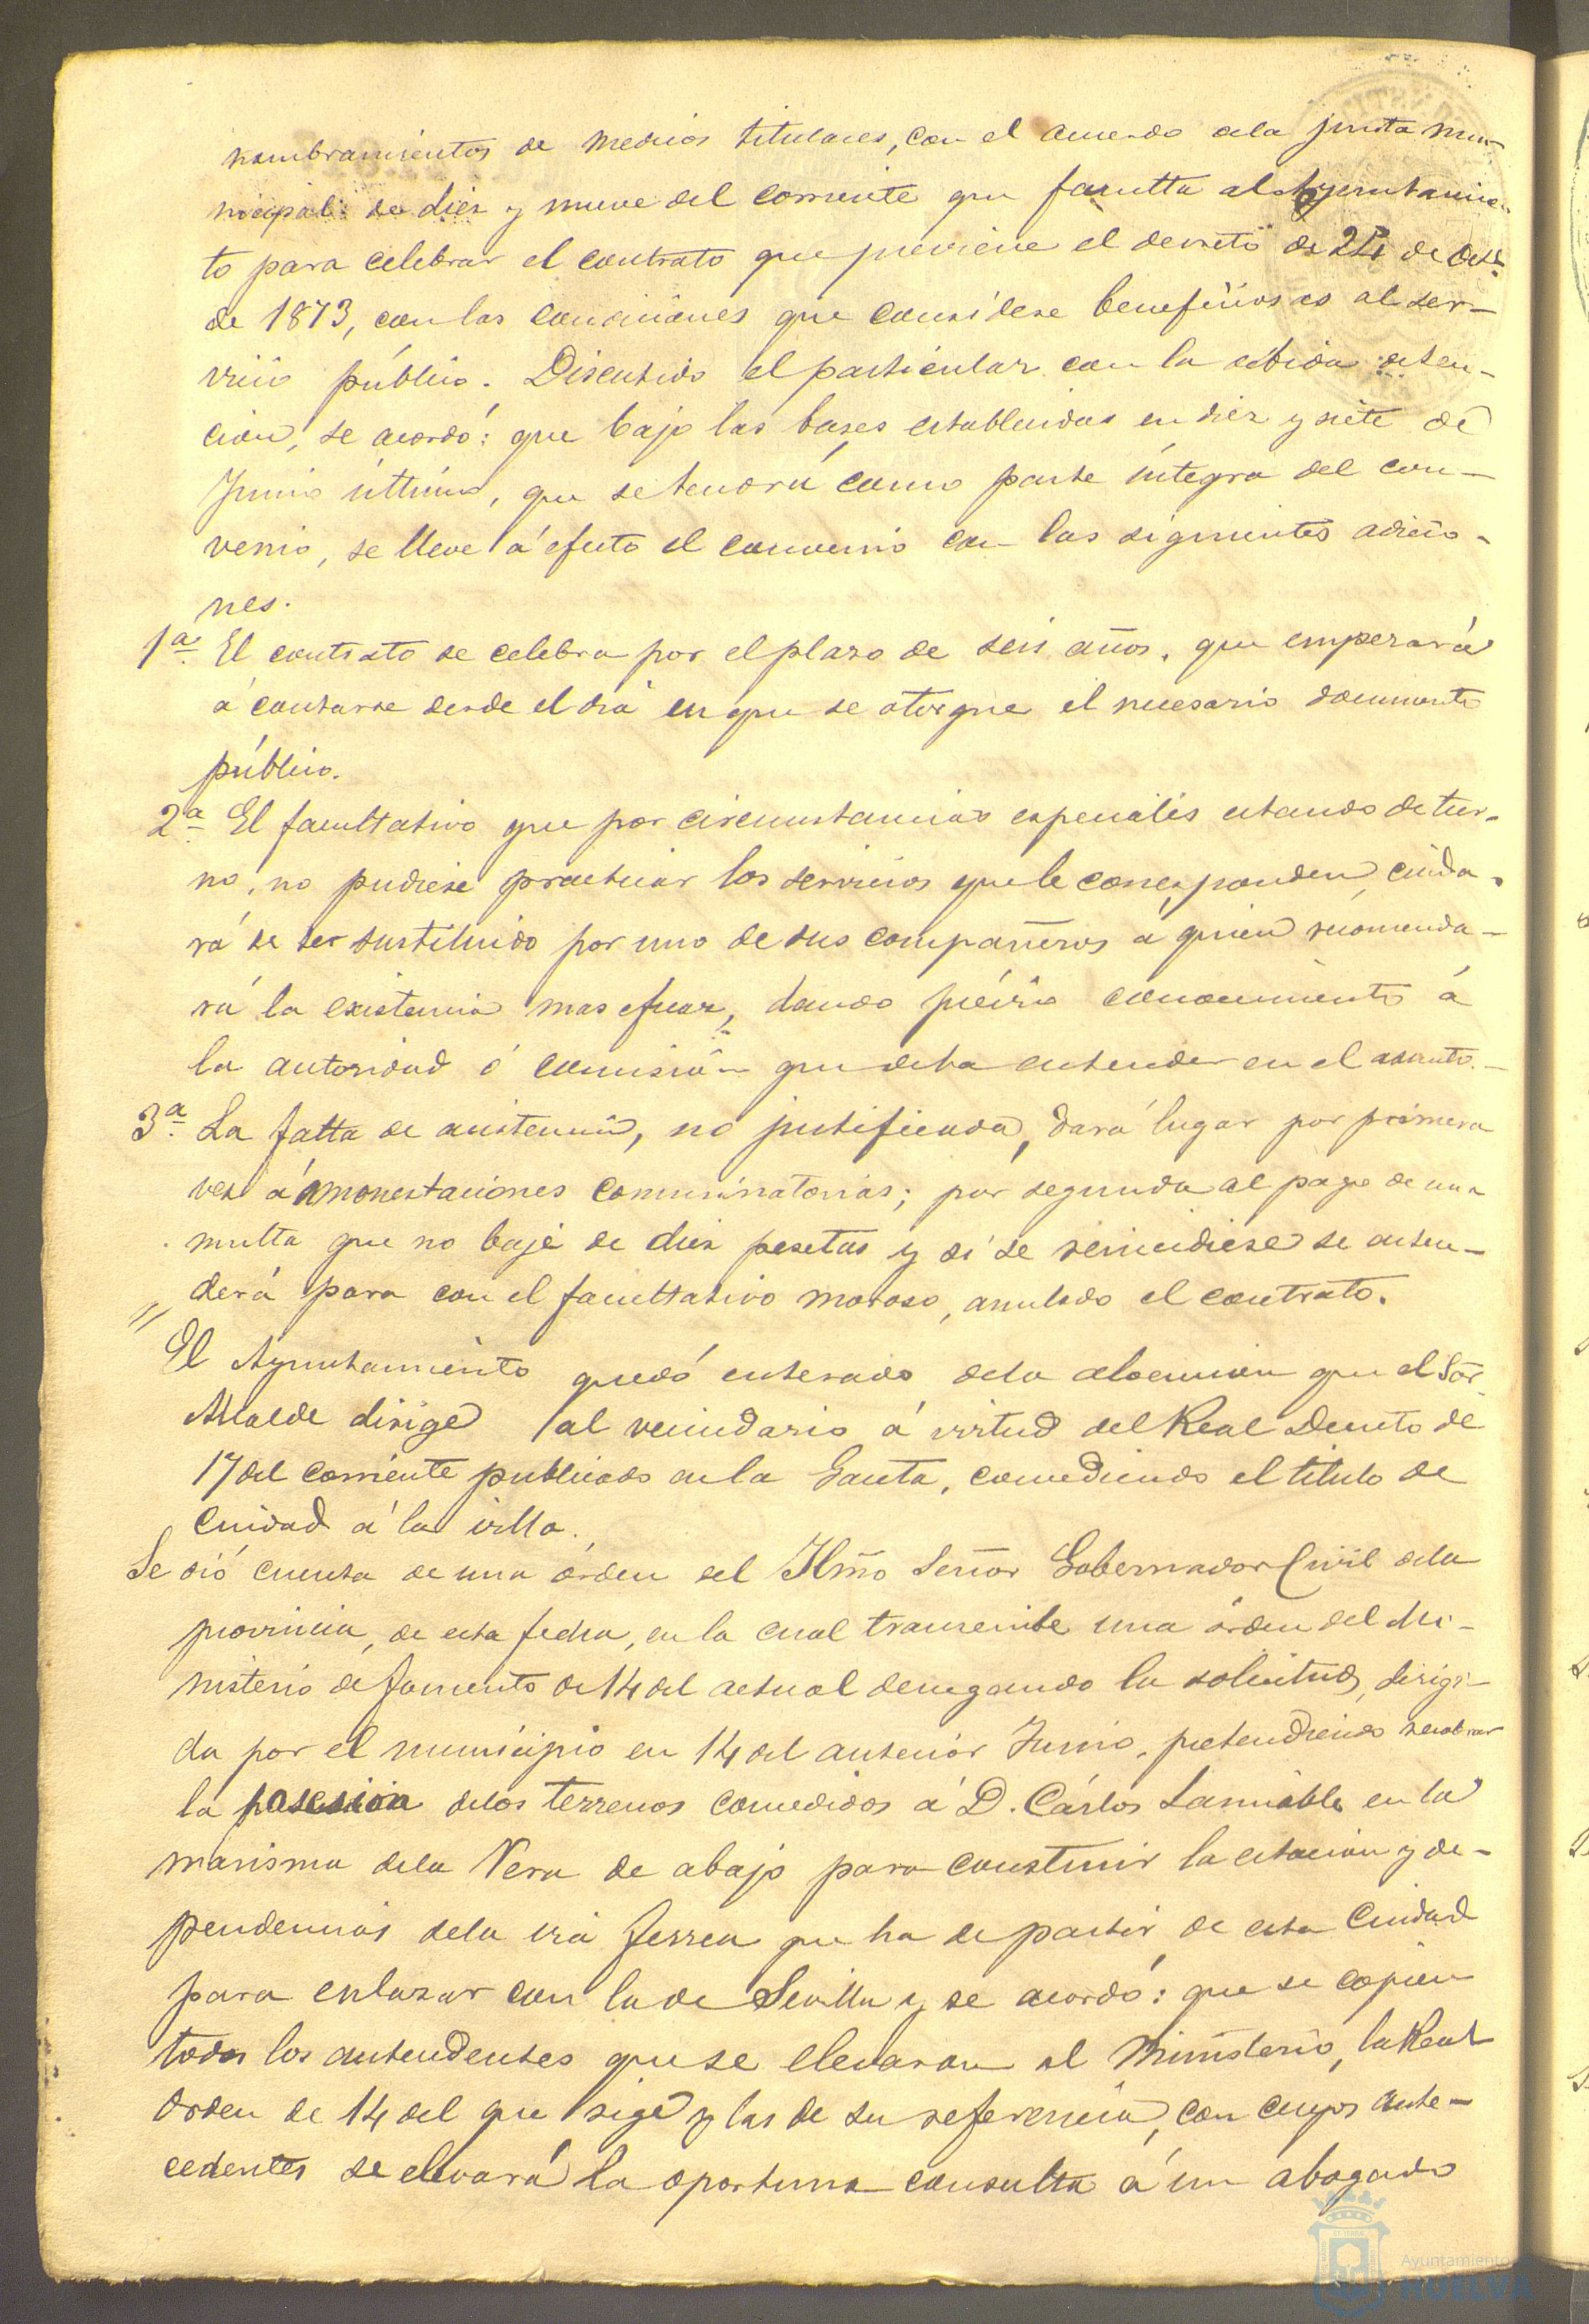 nombramientos de medicos titulares, con el acuerdo dela junta mu-
nicipal de diez y nueve del corriente que faculta al Ayuntamien-
to para celebrar el contrato que previene el decreto de 24 de Octe.
de 1873, con las condiciones que considere beneficiosas al ser-
vicio público. Discutido el particular con la debida deten-
cion, se acordó: que bajo las bases establecidas en diez y siete de
Junio último, que se tendrá como parte íntegra del con-
venio, se lleve á efecto el convenio con las siguientes adicio-
nes.
1ª. El contrato se celebra por el plazo de seis años, que empezará
á contarse desde el dia en que se otorgue el necesario documento
público.
2ª. El facultativo que por circunstancias especiales estando de tur-
no, no pudiese practicar los servicios que le corresponden, cuida-
rá de ser sustituido por uno de sus compañeros á quien recomenda-
rá la existencia mas eficaz, dando prévio conocimiento á
la autoridad ó comision que deba entender en el asunto.
3ª. La falta de asistencia, no justificada, dará lugar por primera
vez á amonestaciones comminatorias; por segunda al pago de una
multa que no baje de diez pesetas y si se reincidiese se enten-
derá para con el facultativo moroso, anulado el contrato.
" El Ayuntamiento quedó enterado dela alocucion que el Sor.
Alcalde dirige al vecindario á virtud del Real Decreto de
17 del corriente publicado en la Gaceta, concediendo el título de
Ciudad á la villa.
Se dió cuenta de una órden del Ilmo Señor Gobernador Civil dela
provincia, de esta fecha, en la cual transcribe una órden del Mi-
nisterio de fomento de 14 del actual denegando la solicitud, dirigi-
da por el municipio en 14 del anterior Junio, pretendiendo recobrar
la posesion delos terrenos concedidos á D. Cárlos Lamiable en la
marisma dela Vera de abajo para construir la estacion y de-
pendencias dela via ferrea que ha de partir de esta Ciudad
para enlazar con la de Sevilla y se acordó: que se copien
todos los antendentes que se elevaron al Ministerio, la Real
órden de 14 del que rige y las de su referencia, con cuyos ante-
cedentes se elevará la oportuna consulta á un abogado
Ayuntamiento
HUELVA